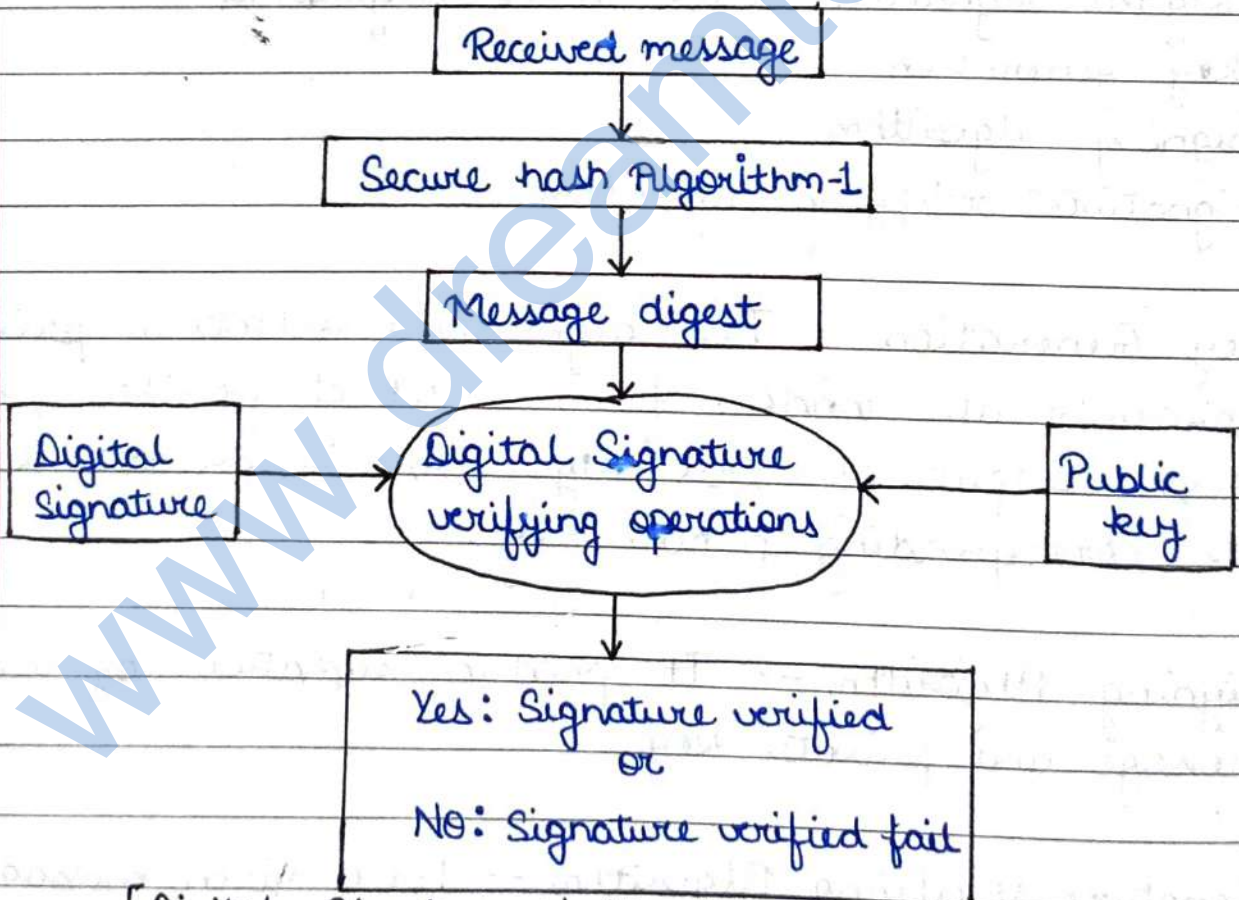 Received message
Secure hash Algorithm-1
Message digest
Digital
Signature
Digital Signature
verifying operations
Public
key
Yes: Signature verified
or
NO: Signature verified fail
www.dream